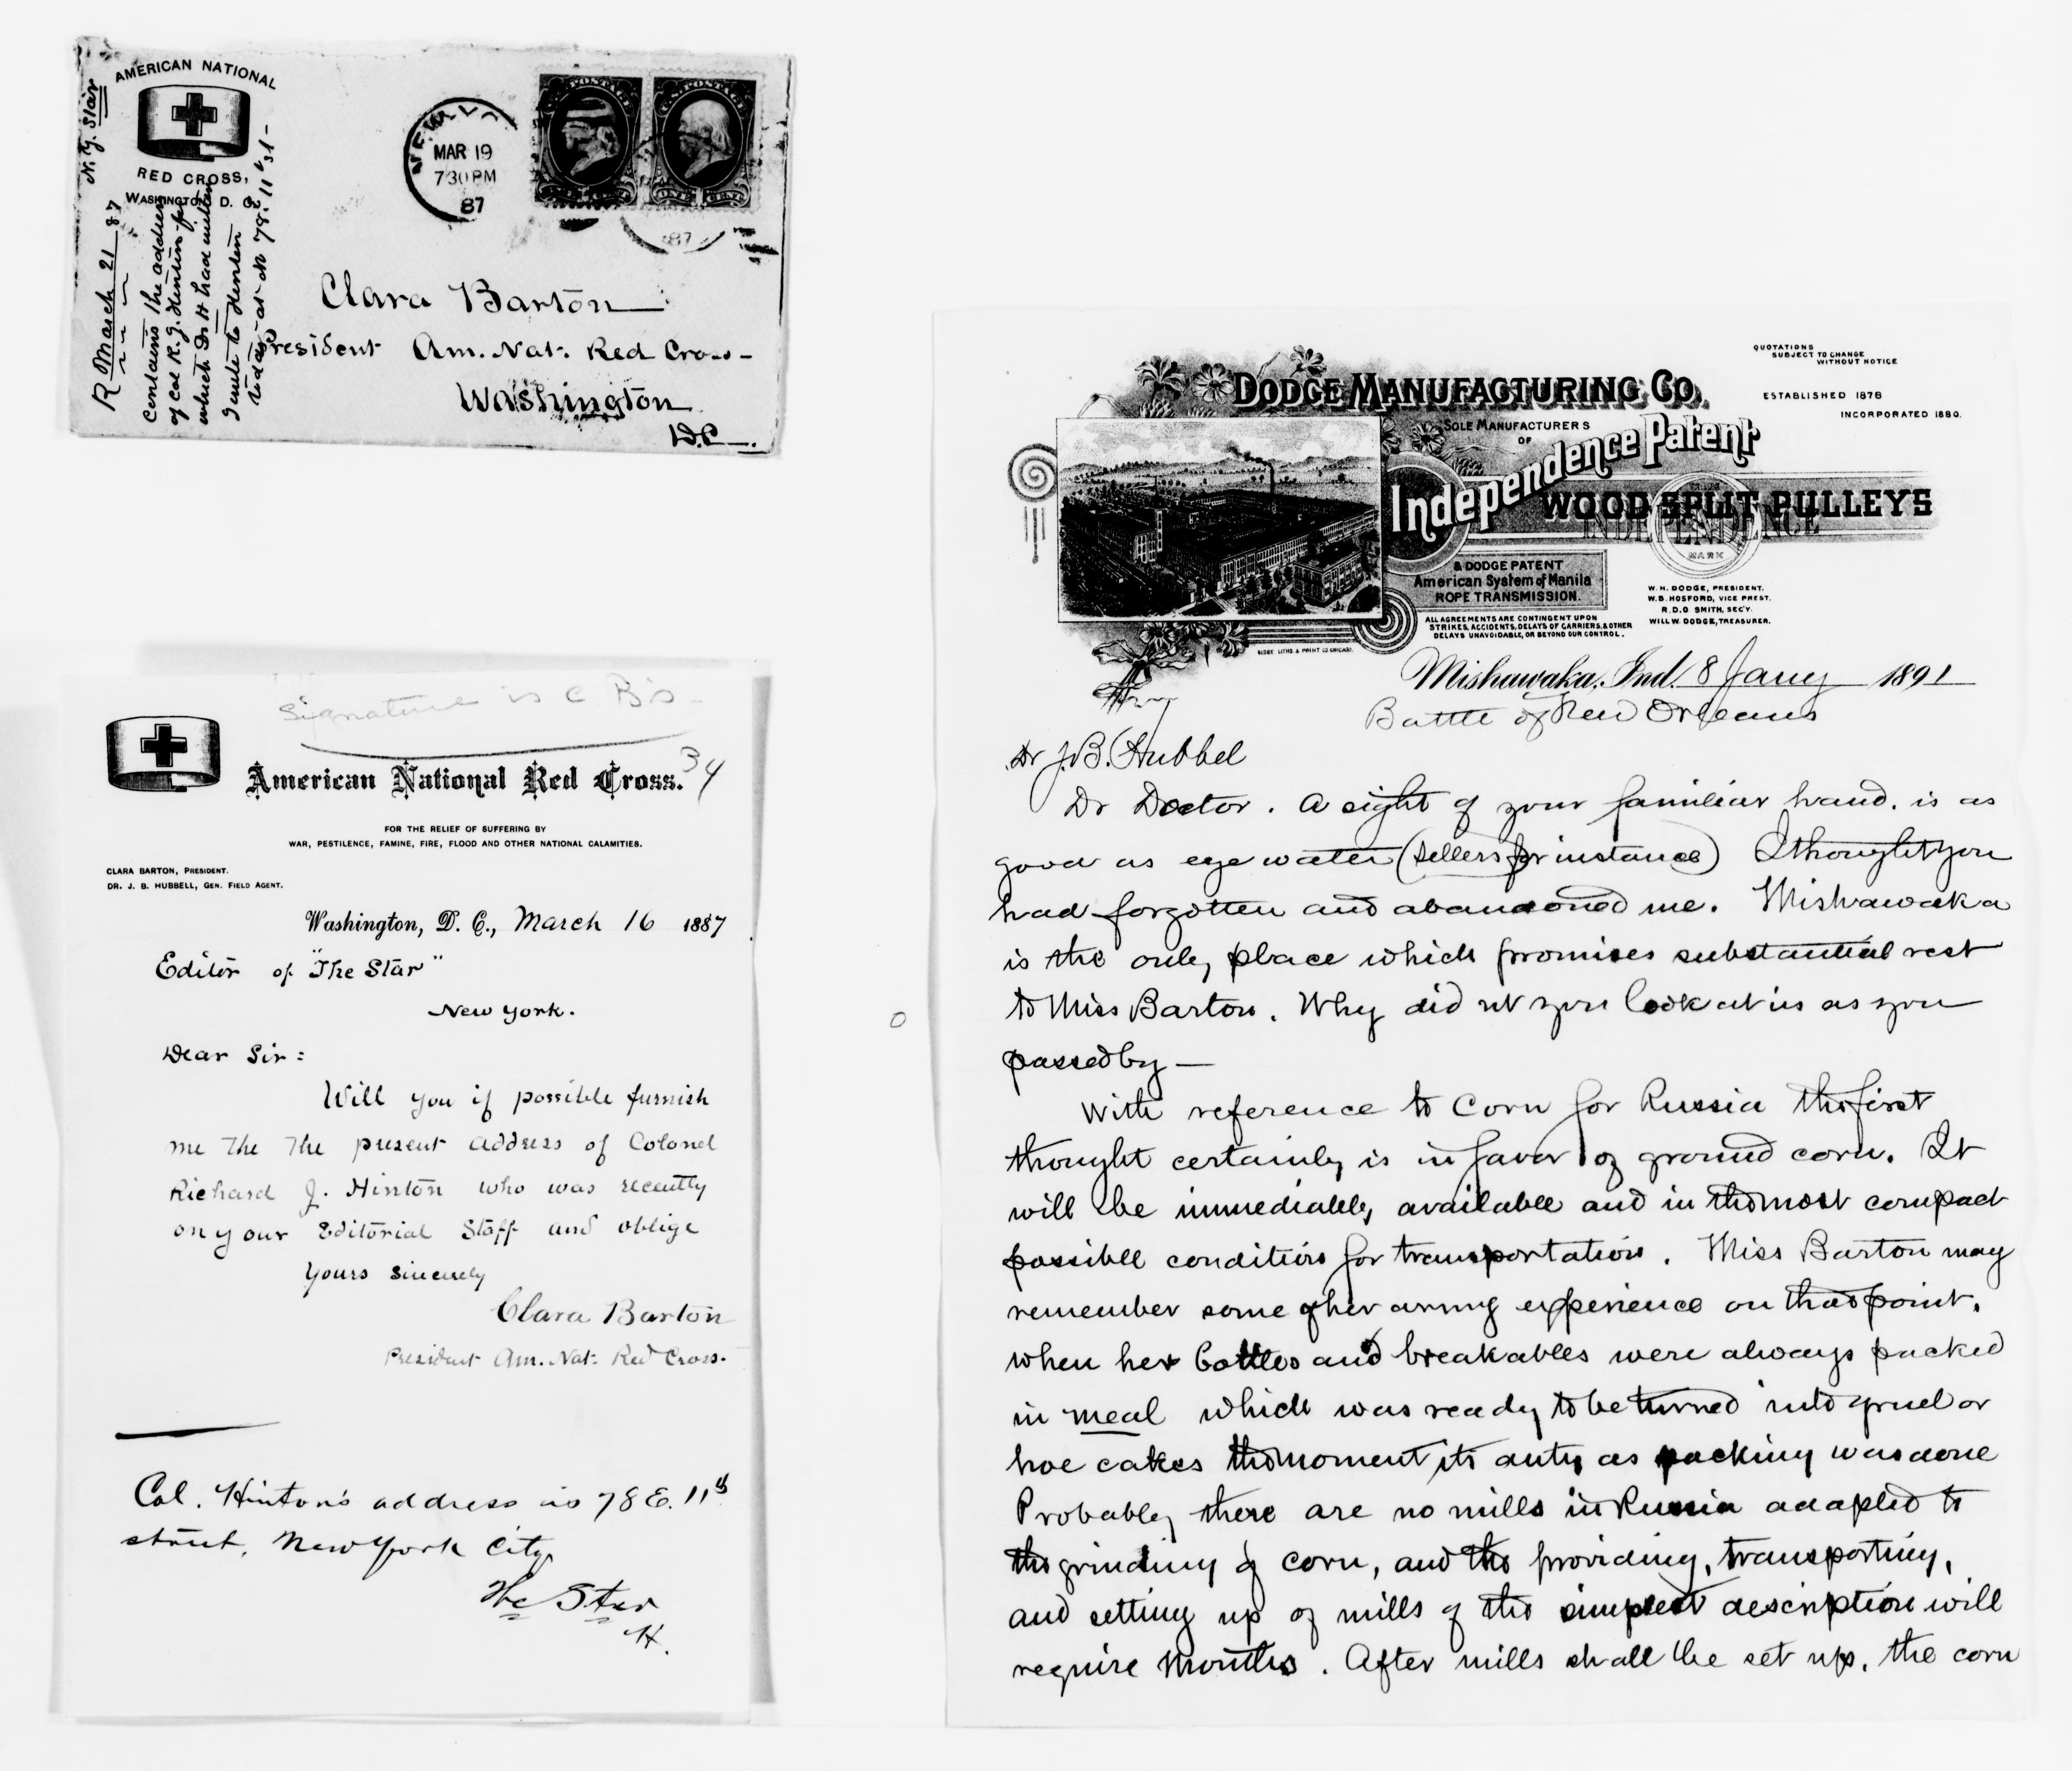 AMERICAN NATIONAL
RED CROSS,
WASHINGTON, D. C.
N.Y. Star
R March 21 87
Contains the address
of Col R. J. Hinton for
which Dr H had written
I write to Hinton
today at No 78. E 11th St -
NEW YO
MAR 19
7 30 PM
87
POSTAGE
POSTAGE
ONE CENT
87
Clara Barton
President Am. Nat. Red Cross -
Washington
D.C.
Signature is C B's -
34
American National Red Cross.
FOR THE RELIEF OF SUFFERING BY
WAR, PESTILENCE, FAMINE, FIRE, FLOOD AND OTHER NATIONAL CALAMITIES.
CLARA BARTON, PRESIDENT.
DR. J. B. HUBBELL, GEN. FIELD AGENT.
Washington, D. C., March 16 1887
Editor of "The Star"
New York.
Dear Sir:
Will you if possible furnish
me the the present address of Colonel
Richard J. Hinton who was recently
on your Editorial Staff and oblige
Yours Sincerely
Clara Barton
President Am. Nat. Red Cross.
Col. Hinton's address is 78 E. 11th
street, New York City
The Star
H.
QUOTATIONS
SUBJECT TO CHANGE
WITHOUT NOTICE
DODGE MANUFACTURING CO.
ESTABLISHED 1878
INCORPORATED 1880.
SOLE MANUFACTURERS
OF
Independence Patent
WOOD SPLIT PULLEYS
TRADE
INDEPENDENCE
MARK
& DODGE PATENT
American System of Manila
ROPE TRANSMISSION.
W. H. DODGE, PRESIDENT.
W. B. HOSFORD, VICE PREST.
R. D. O SMITH, SEC'Y.
WILL W. DODGE, TREASURER.
ALL AGREEMENTS ARE CONTINGENT UPON
STRIKES, ACCIDENTS, DELAYS OF CARRIERS, & OTHER
DELAYS UNAVOIDABLE, OR BEYOND OUR CONTROL.
GLOBE LITHO. & PRINT CO CHICAGO.
Mishawaka, Ind. 8 Jany 1891
Battle of New Orleans
Dr J. B. Hubbel
Dr Doctor. A sight of your familiar hand. is as
good as eye water (Sellers for instance) I thought you
had forgotten and abandoned me. Mishawaka
is the only place which promises substantial rest
to Miss Barton. Why did nt you look at us as you
passed by —
With reference to Corn for Russia the first
thought certainly is in favor of ground corn. It
will be immediately available and in the most compact
possible condition for transportation. Miss Barton may
remember some of her army experience on that point.
when her bottles and breakables were always packed
in meal which was ready to be turned into gruel or
hoe cakes the moment its duty as packing was done
Probably there are no mills in Russia adapted to
the grinding of corn, and the providing, transporting,
and setting up of mills of the simplest description will
require months. After mills shall be set up, the corn